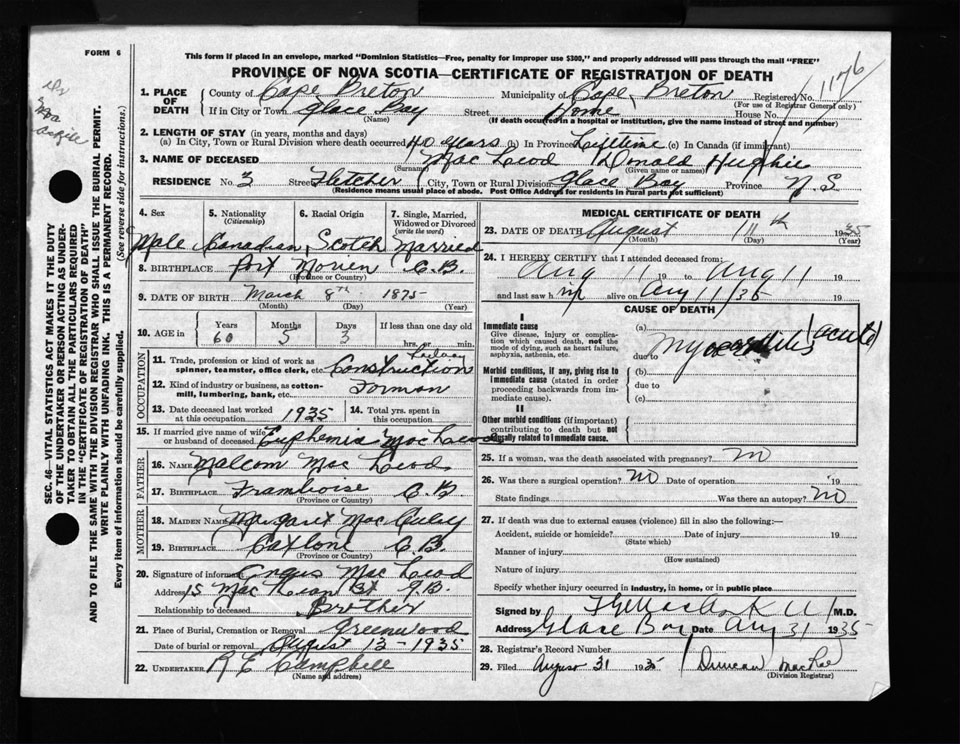 FORM 6
This form if placed in an envelope, marked "Dominion Statistics—Free, penalty for improper use $300," and properly addressed will pass through the mail "FREE"
PROVINCE OF NOVA SCOTIA—CERTIFICATE OF REGISTRATION OF DEATH
1176
1. PLACE OF DEATH
County of Cape Breton Municipality of Cape Breton Registered No.
(For use of Registrar General only)
If in City or Town Glace Bay Street Home House No.
(Name) (If death occurred in a hospital or institution, give the name instead of street and number)
2. LENGTH OF STAY (in years, months and days)
(a) In City, Town or Rural Division where death occurred 40 years (b) In Province Lifetime (c) In Canada (if immigrant)
3. NAME OF DECEASED Mac Leod Donald Hughie
(Surname) (Given name or names)
RESIDENCE No. 3 Street Fletcher City, Town or Rural Division Glace Bay Province N.S.
(Residence means usual place of abode. Post Office Address for residents in rural parts not sufficient)
4. Sex 5. Nationality (Citizenship) 6. Racial Origin 7. Single, Married, Widowed or Divorced (write the word)
Male Canadian Scotch Married
8. BIRTHPLACE Port Morien C.B.
(Province or Country)
9. DATE OF BIRTH March 8th 1875
(Month) (Day) (Year)
10. AGE in Years Months Days If less than one day old
60 5 3 hrs. or min.
OCCUPATION
11. Trade, profession or kind of work as spinner, teamster, office clerk, etc. Railway Construction
12. Kind of industry or business, as cotton-mill, lumbering, bank, etc. Forman
13. Date deceased last worked at this occupation 1935 14. Total yrs. spent in this occupation
15. If married give name of wife or husband of deceased Euphemia Mac Leod
FATHER
16. NAME Malcom Mac Leod
17. BIRTHPLACE Framboise C.B
(Province or Country)
MOTHER
18. MAIDEN NAME Margaret Mac Culey
19. BIRTHPLACE C.B.
(Province or Country)
20. Signature of informant Angus Mac Leod
Address 15 Mac Lean St G.B.
Relationship to deceased Brother
21. Place of Burial, Cremation or Removal Greenwood
Date of burial or removal August 13 - 1935
22. UNDERTAKER R E Campbell
(Name and address)
MEDICAL CERTIFICATE OF DEATH
23. DATE OF DEATH August 11th 1935
(Month) (Day) (Year)
24. I HEREBY CERTIFY that I attended deceased from:
Aug 11 19 to Aug 11 19
and last saw him alive on Aug 11/35 19
CAUSE OF DEATH
I
Immediate cause
Give disease, injury or complication which caused death, not the mode of dying, such as heart failure, asphyxia, asthenia, etc.
(a)
Myocarditis (acute)
due to
Morbid conditions, if any, giving rise to immediate cause (stated in order proceeding backwards from immediate cause).
(b)
due to
(c)
II
Other morbid conditions (if important) contributing to death but not causally related to immediate cause.
25. If a woman, was the death associated with pregnancy? No
26. Was there a surgical operation? No Date of operation 19
State findings Was there an autopsy? No
27. If death was due to external causes (violence) fill in also the following:—
Accident, suicide or homicide? Date of injury 19
(State which)
Manner of injury
(How sustained)
Nature of injury
Specify whether injury occurred in industry, in home, or in public place
Signed by M.D.
Address Glace Bay Date Aug 31 1935
28. Registrar's Record Number
29. Filed August 31 1935 Duncan MacRae
(Division Registrar)
SEC. 46—VITAL STATISTICS ACT MAKES IT THE DUTY
OF THE UNDERTAKER OR PERSON ACTING AS UNDER-
TAKER TO OBTAIN ALL THE PARTICULARS REQUIRED
IN THE "CERTIFICATE OF REGISTRATION OF DEATH"
AND TO FILE THE SAME WITH THE DIVISION REGISTRAR WHO SHALL ISSUE THE BURIAL PERMIT.
WRITE PLAINLY WITH UNFADING INK. THIS IS A PERMANENT RECORD.
Every item of information should be carefully supplied. (See reverse side for instructions.)